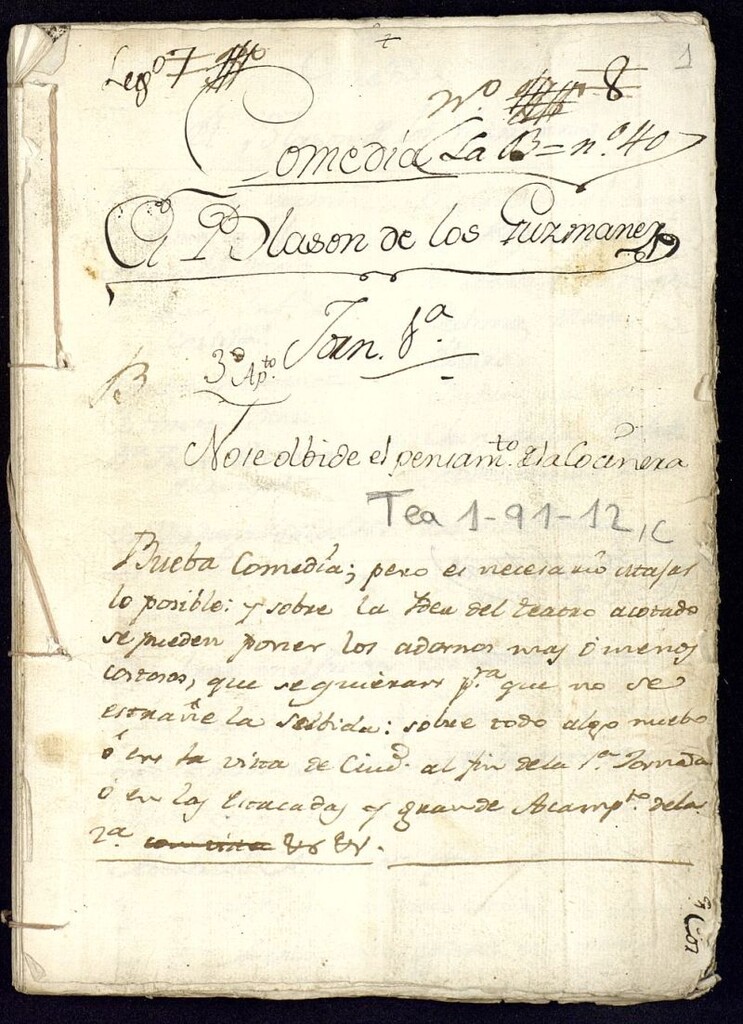 1
Leg.º 7
N.º 8
Comedia La B = n.º 40
El Blason de los Guzmanes
Jorn. 1ª
3.º Ap.to
No se olbide el pensam.to de la Cocinera
Tea 1-91-12, C
Bueba Comedia; pero es necesario atajar
lo posible: y sobre la Idea del teatro acotado
se pueden poner los adornos mas ó menos
costosos, que se quieran p.ª que no se
estrañe la subida: sobre todo algo nuebo
ó en la vista de Ciud. al fin de la 1.ª Jornada
ó en las estacadas y grande Acamp.to de la
2.ª con vista &c &c.